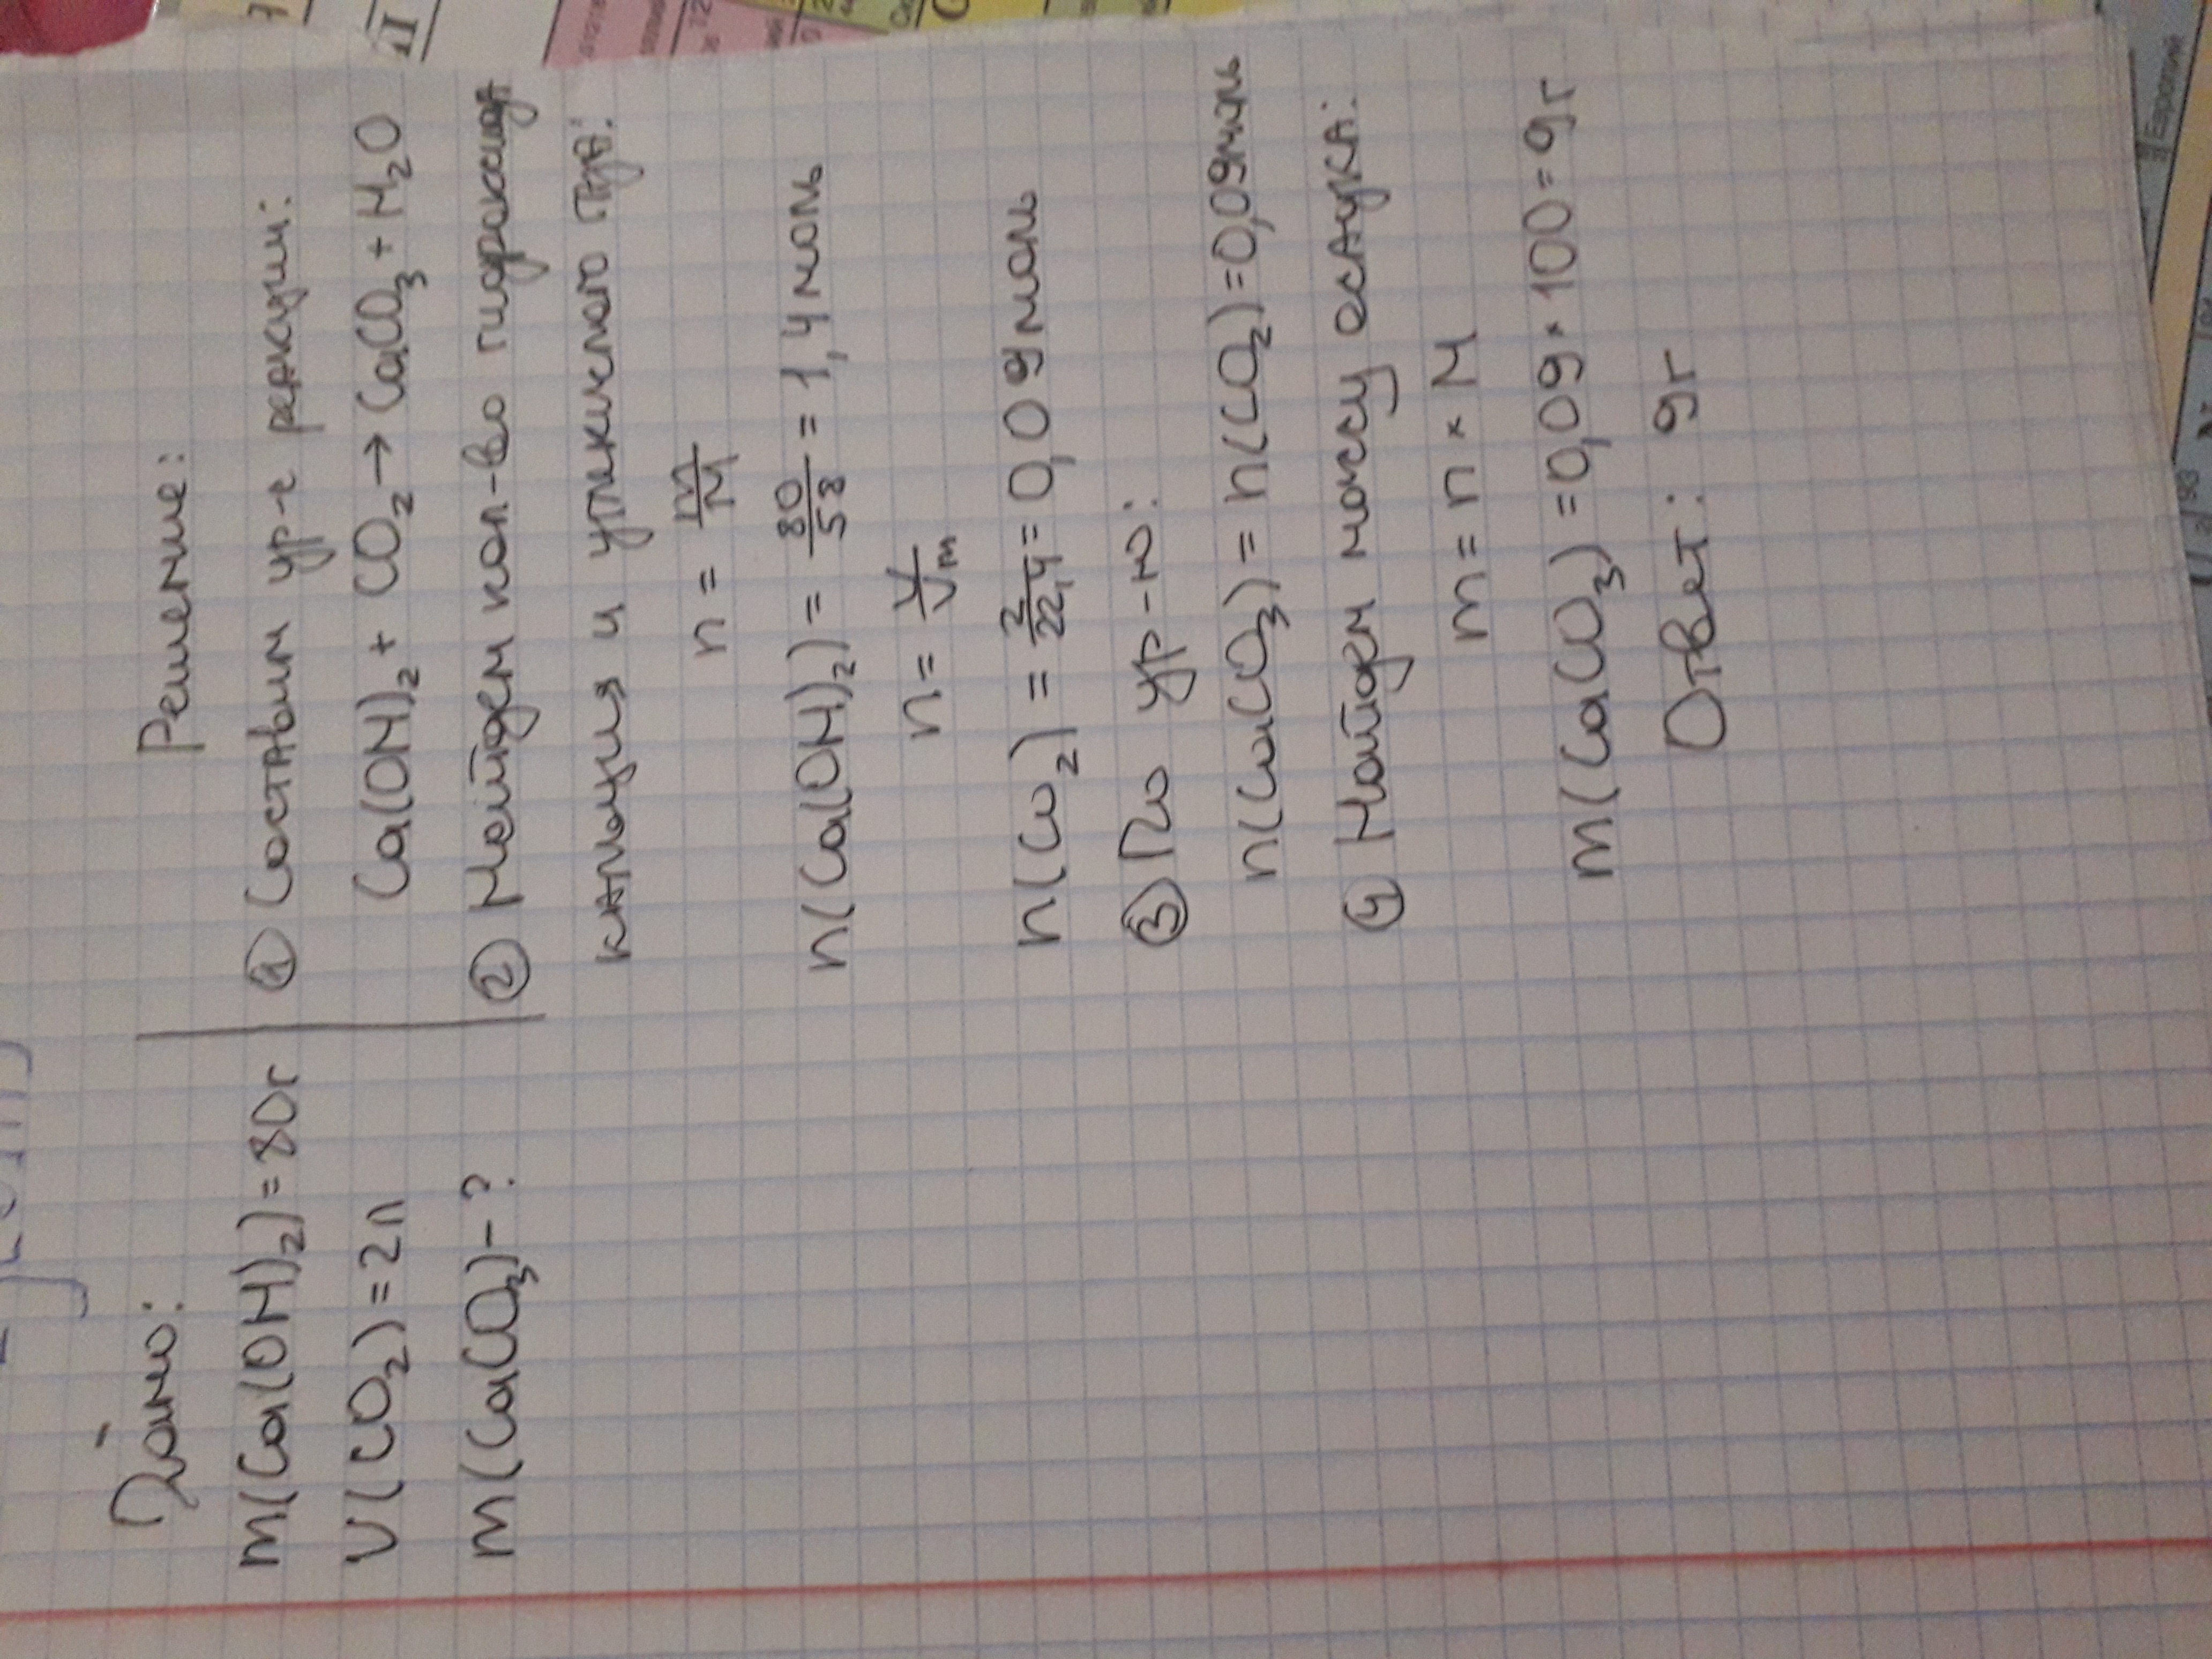 Дано:
m(Ca(OH)₂)=80г
V(CO₂)=2л
m(CaCO₃)-?
Решение:
① Составим ур-е реакции:
Ca(OH)₂ + CO₂ → CaCO₃ + H₂O
② Найдем кол-во гидроксида
кальция и углекислого газа:
n = m/M
n(Ca(OH)₂) = 80/58 = 1,4 моль
n = V/Vm
n(CO₂) = 2/22,4 = 0,09 моль
③ По ур-ю:
n(CaCO₃) = n(CO₂) = 0,09моль
④ Найдем массу осадка:
m = n × M
m(CaCO₃) = 0,09 × 100 = 9г
Ответ: 9г
II
Европий